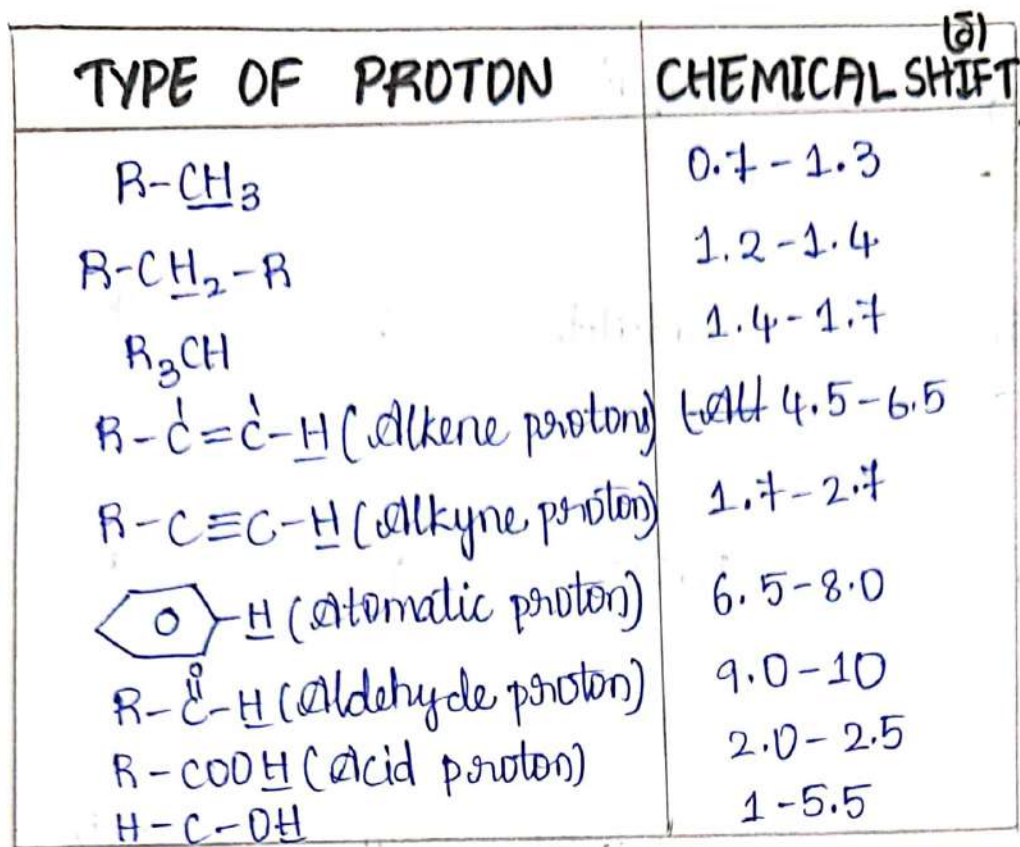 (δ)
TYPE OF PROTON CHEMICAL SHIFT
R-CH₃ 0.7-1.3
R-CH₂-R 1.2-1.4
R₃CH 1.4-1.7
R-C=C-H (Alkene proton) 4.5-6.5
R-C≡C-H (Alkyne proton) 1.7-2.7
-H (Atomatic proton) 6.5-8.0
O
R-C-H (Aldehyde proton) 9.0-10
R-COOH (Acid proton) 2.0-2.5
H-C-OH 1-5.5